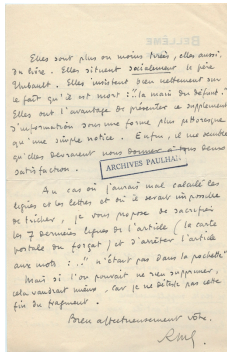 BELLÊME
Elles sont plus ou moins tirées, elles aussi
du livre. Elles situent socialement le père
Thibault. Elles insistent bien nettement sur
le fait qu'il est mort: "la main du défunt."
Elles ont l'avantage de présenter ce supplément
d'information sous une forme plus pittoresque
qu'une simple notice. Enfin, il me semble
qu'elles devraient nous donner à tous deux
satisfaction.
ARCHIVES PAULHAN
Au cas où j'aurais mal calculé les
lignes et les lettres et où il serait impossible
de tricher, je vous propose de sacrifier
les 7 dernières lignes de l'article (la carte
postale du forçat) et d'arrêter l'article
aux mots: "n'était pas dans la pochette"
Mais si l'on pouvait ne rien supprimer,
cela vaudrait mieux, car je ne déteste pas cette
fin du fragment.
Bien affectueusement vôtre.